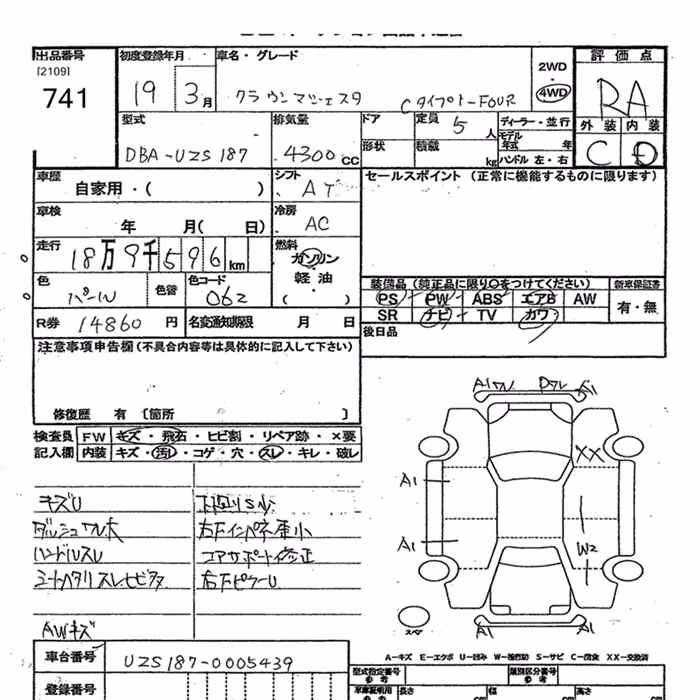 出品番号
[2109]
741
初度登録年月
19 3月
車名・グレード
クラウンマジェスタ Cタイプi-FOUR
2WD
4WD
評価点
RA
外装 内装
C D
型式
DBA-UZS187
排気量
4300cc
ドア
形状
定員 5人
積載 kg
ディーラー・並行
モデル年式 年
ハンドル 左・右
車歴
自家用・( )
シフト
AT
セールスポイント (正常に機能するものに限ります)
車検
年 月( 日)
冷房
AC
走行
18万9千596km
燃料
ガソリン
軽油
( )
色
パール
色替
色コード
062
装備品 (純正品に限り○をつけてください)
PS PW ABS エアB AW
SR ナビ TV カワ
新車保証書
有・無
R券 14860円
名変通知期限 月 日
後日品
注意事項申告欄 (不具合内容等は具体的に記入して下さい)
修復歴 有 〔箇所 〕
検査員記入欄
FW キズ・飛石・ヒビ割・リペア跡・×要
内装 キズ・汚れ・コゲ・穴・スレ・キレ・破レ
キズU
ダッシュワレ大
ハンドルスレ
シートヘタリスレヒビワレ
AWキズ
下回りS少
右Fインパネ歪小
コアサポート修正
右Fピラー凹
A1 ワレ
A1
A1
XX
W2
A1
A1
スペア
A-キズ E-エクボ U-凹み W-補修跡 S-サビ C-腐食 XX-交換済
車台番号
UZS187-0005439
登録番号
型式指定番号
参考
類別区分番号
参考
長さ
幅
高さ